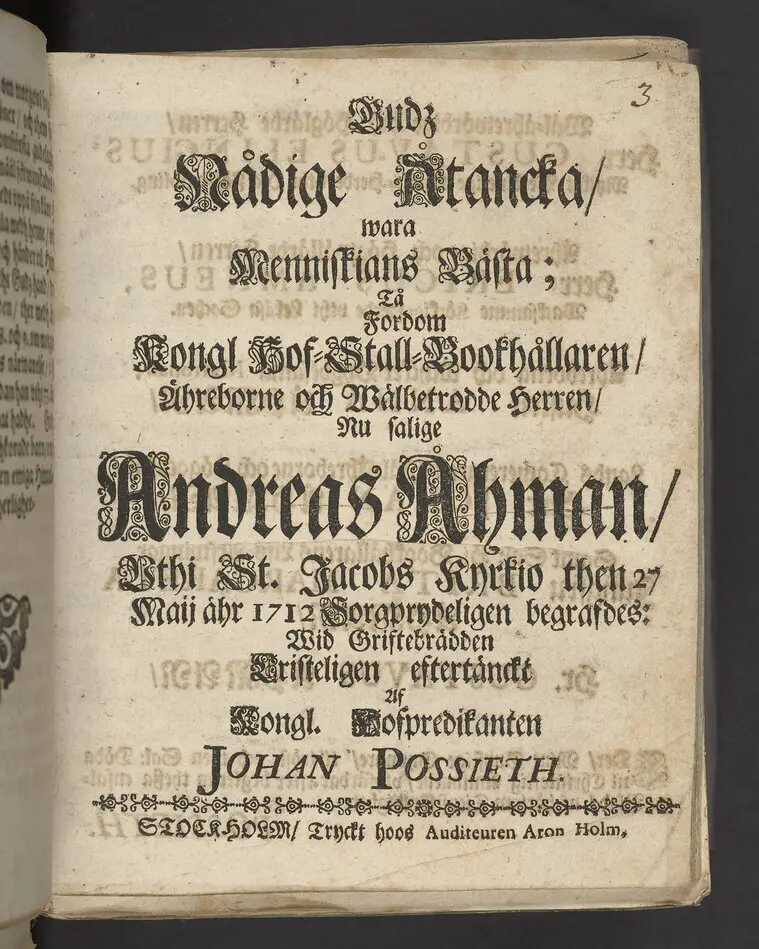 3
Gudz
Nådige Åtancka/
wara
Menniskians Bästa;
Tå
Fordom
Kongl Hof-Stall-Bookhållaren/
Ähreborne och Wälbetrodde Herren/
Nu salige
Andreas Åhman/
Vthi St. Jacobs Kyrkio then 27
Maij åhr 1712 Sorgprydeligen begrafdes:
Wid Griftebrädden
Cristeligen eftertänckt
Af
Kongl. Hofpredikanten
JOHAN POSSIETH.
STOCKHOLM/ Tryckt hoos Auditeuren Aron Holm,